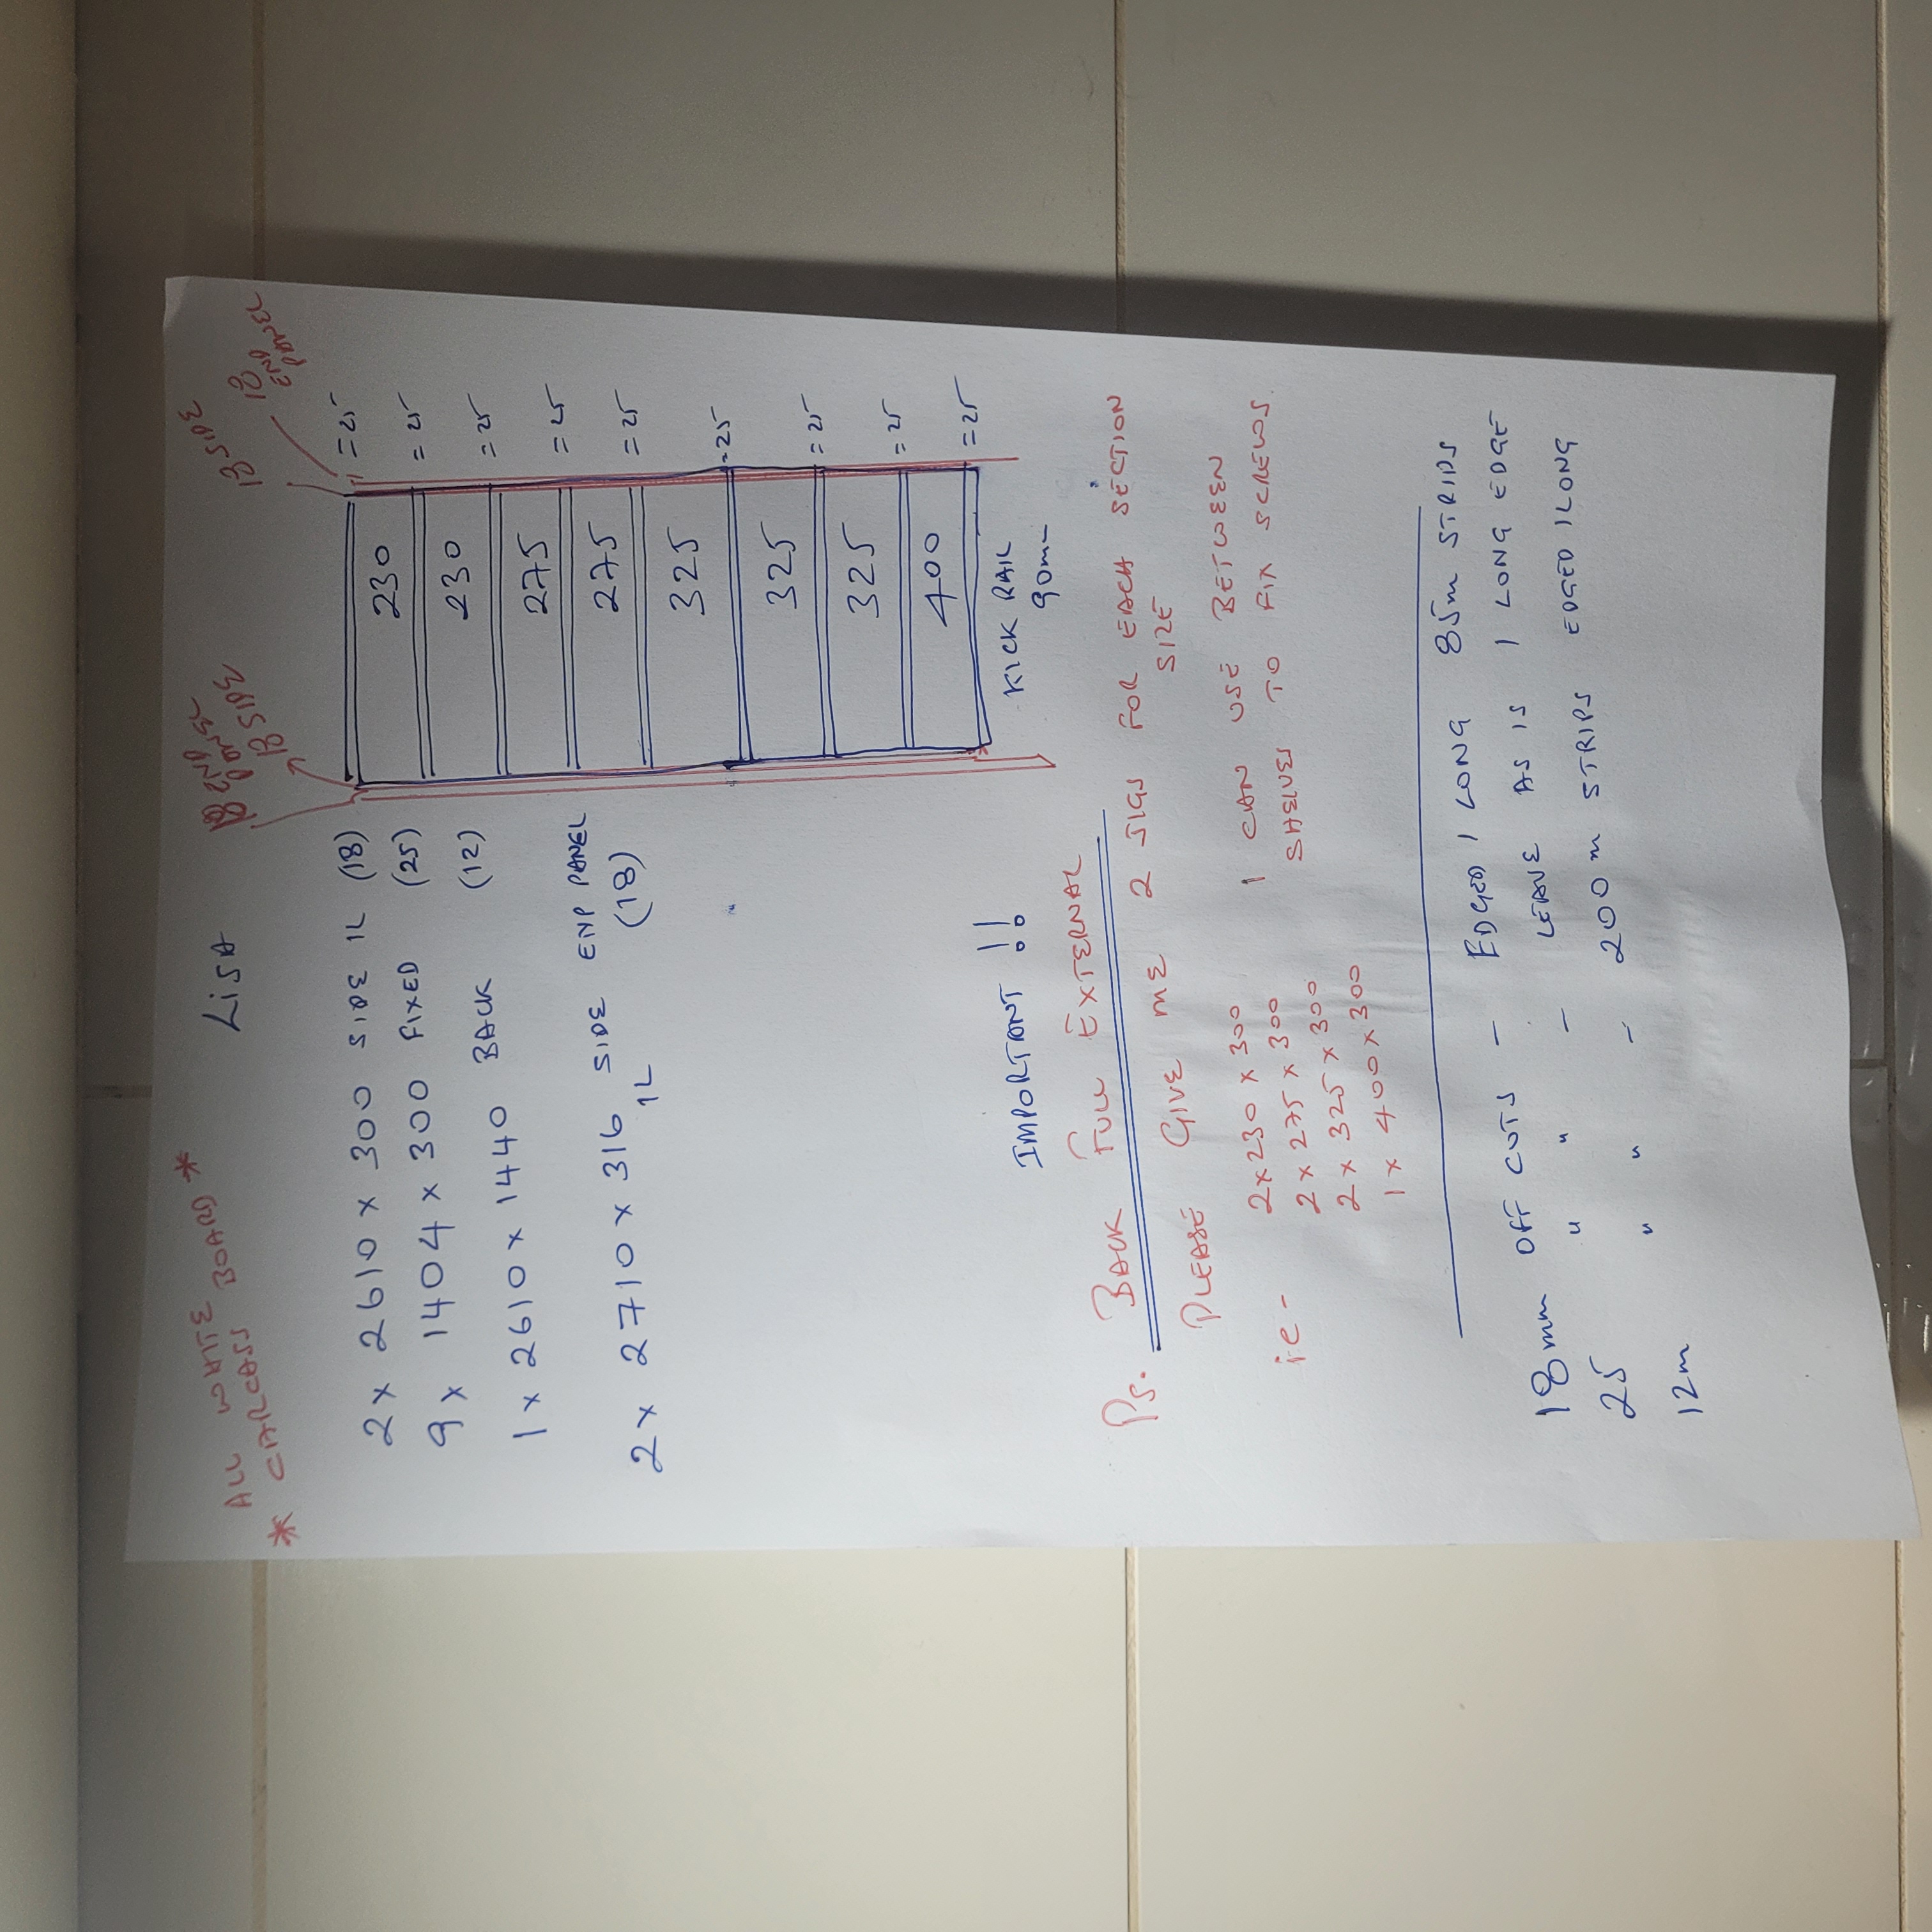 ALL WHITE
* CARCASS BOARD *
LISA
2 x 2610 x 300 SIDE 1L (18)
9 x 1404 x 300 FIXED (25)
1 x 2610 x 1440 BACK (12)
2 x 2710 x 316 SIDE END PANEL
1L (18)
18 END
PANEL
18 SIDE
18 SIDE
18
END
PANEL
= 25
230
= 25
230
= 25
275
= 25
275
= 25
325
= 25
325
= 25
325
= 25
400
= 25
KICK RAIL
90m
IMPORTANT !!
Ps. BACK FULL EXTERNAL
PLEASE GIVE ME 2 JIGS FOR EACH SECTION
SIZE
i.e - 2 x 230 x 300
2 x 275 x 300
2 x 325 x 300
1 x 400 x 300
I CAN USE BETWEEN
SHELVES TO FIX SCREWS.
18mm OFF CUTS - EDGED 1 LONG 85m STRIPS
25 " " - LEAVE AS IS 1 LONG EDGE
12m " " - 200m STRIPS EDGED 1LONG